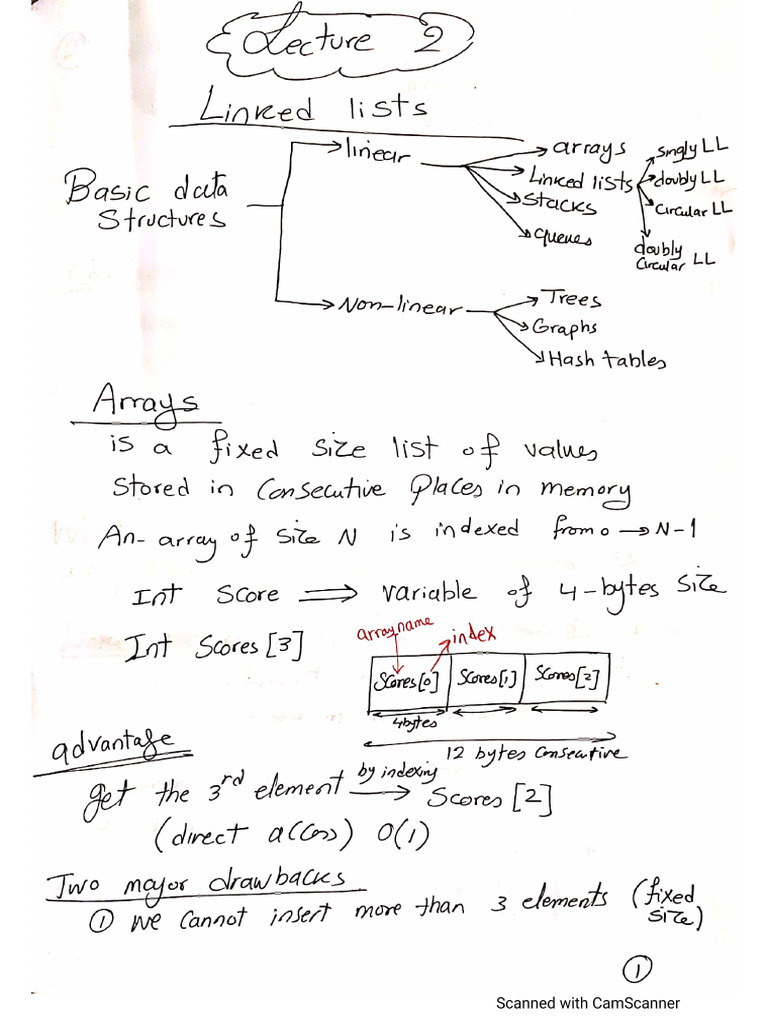 Lecture 2
Linked lists
Basic data
Structures
linear
arrays
Linked lists
Stacks
queues
singly LL
doubly LL
Circular LL
doubly
Circular LL
Non-linear
Trees
Graphs
Hash tables
Arrays
is a fixed size list of values
Stored in Consecutive Places in memory
An array of size N is indexed from 0 → N-1
Int Score ⟹ variable of 4-bytes size
Int Scores[3]
array name
index
Scores[0] Scores[1] Scores[2]
4 bytes
12 bytes Consecutive
advantage
get the 3rd element by indexing → Scores[2]
(direct access) O(1)
Two major drawbacks
① We cannot insert more than 3 elements (fixed size)
①
Scanned with CamScanner